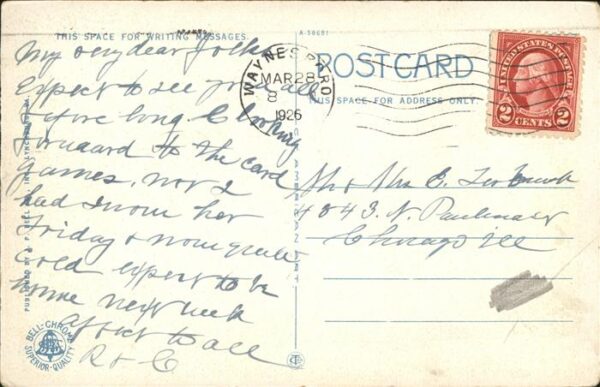 THIS SPACE FOR WRITING MESSAGES.
A-50681
POSTCARD
THIS SPACE FOR ADDRESS ONLY.
WAYNESBORO
MAR 28
8
1926
UNITED STATES POSTAGE
2 CENTS 2
My very dear folks
expect to see you all
before long & looking
forward to the card
games, now
had snow her
Friday & now quite
cold expect to be
home next week
to all
R & C
Mr & Mrs
4843 N. Paulina St
Chicago Ill
BELL-CHROME
SUPERIOR-QUALITY